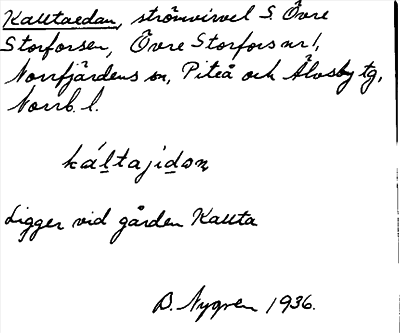 Kalltaedan, strömvirvel S. Övre
Storforsen, Övre Storfors nr 1,
Norrfjärdens sn, Piteå och Älvsby tg,
Norrb. l.
káltajidan
Ligger vid gården Kallta
B. Nygren 1936.